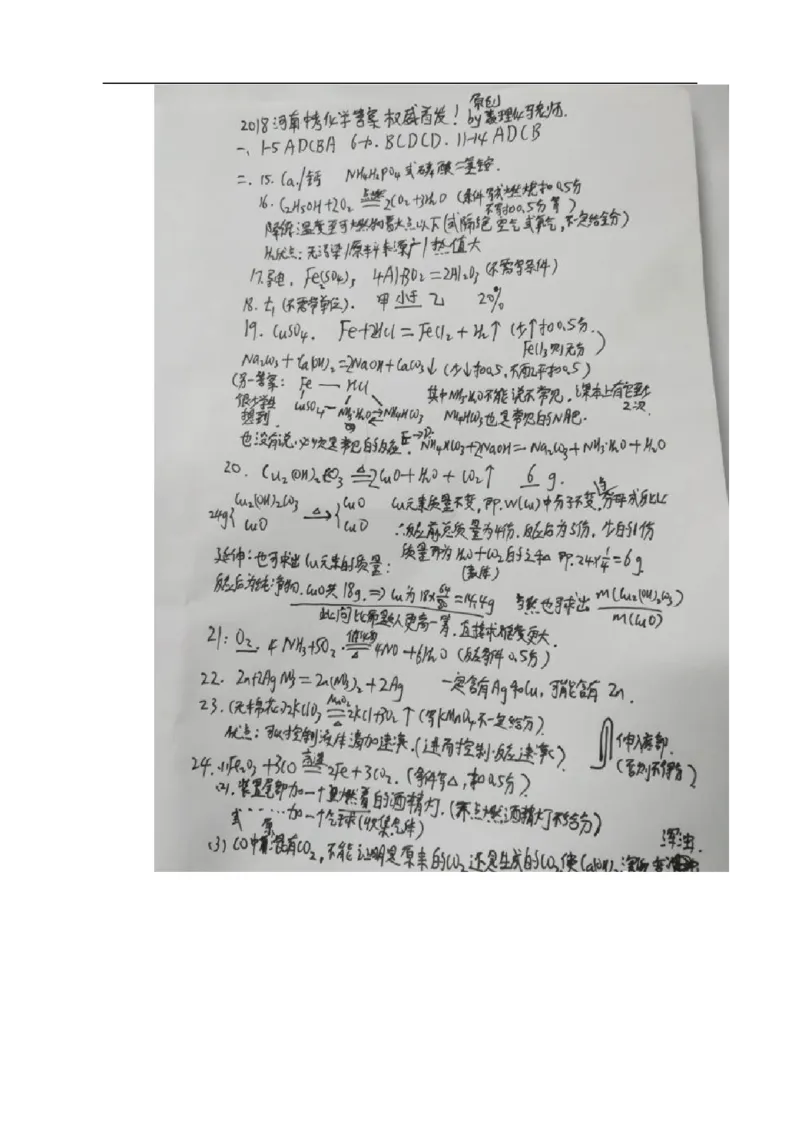 原创
2018河南中考化学答案权威首发！by 数理化于老师.
一、1-5 ADCBA 6-10. BCDCD. 11-14 ADCB
二. 15. Ca./钙 NH₄H₂PO₄ 或磷酸二氢铵.
16. C₂H₅OH+3O₂ 点燃 2CO₂+3H₂O (条件写成燃烧扣0.5分
不写扣0.5分等)
降低温度至可燃物着火点以下(或隔绝空气或氧气,不一定给全分)
优点:无污染/原料来源广/热值大
17. 导电. Fe₂(SO₄)₃ 4Al+3O₂=2Al₂O₃ (不需写条件)
18. t₁ (不需带单位). 甲小于乙 20%
19. CuSO₄. Fe+2HCl=FeCl₂+H₂↑ (少↑扣0.5分.
FeCl₃则无分)
Na₂CO₃+Ca(OH)₂=2NaOH+CaCO₃↓ (少↓扣0.5,不配平扣0.5)
(另一答案: Fe — HCl 其中NH₃·H₂O不能说不常见,课本上有它至少
很少学生 CuSO₄—NH₃·H₂O⇌NH₄HCO₃ NH₄HCO₃也是常见的N肥. 2次
想到.
也没有说必须是常见的反应. E→D: NH₄HCO₃+2NaOH=Na₂CO₃+NH₃·H₂O+H₂O
20. Cu₂(OH)₂CO₃ △ 2CuO+H₂O+CO₂↑ 6 g.
24g{Cu₂(OH)₂CO₃ △→ {CuO Cu元素质量不变,即:W(Cu)中分子不变,分母成反比
CuO CuO ∴反应前总质量为4份.反应后为3份,少的1份
延伸:也可求出Cu元素的质量: 质量即为H₂O+CO₂的之和 即:24×¼=6g
反应后为纯净物.CuO共18g.⇒Cu为18×64/80=14.4g 当然也可求出 m(Cu₂(OH)₂CO₃)/m(CuO)
此问比希望人更高一筹.直接求难度更大.
21: O₂. 4NH₃+5O₂ 催化剂 △ 4NO+6H₂O (反应条件0.5分)
22. Zn+2AgNO₃=Zn(NO₃)₂+2Ag 一定含有Ag和Cu,可能含有Zn.
23. (无棉花)2KClO₃ MnO₂ △ 2KCl+3O₂↑ (写KMnO₄不一定给分).
优点:可以控制液体滴加速率.(进而控制反应速率)
伸入底部.
(否则不得分)
24. (1) Fe₂O₃+3CO 高温 2Fe+3CO₂. (条件写△,扣0.5分).
(2). 装置尾部加一个点燃着的酒精灯.(未点燃酒精灯不给分)
或……加一个气球(收集气体)
(3) CO中混有CO₂,不能证明是原来的CO₂还是生成的CO₂使Ca(OH)₂
浑浊.